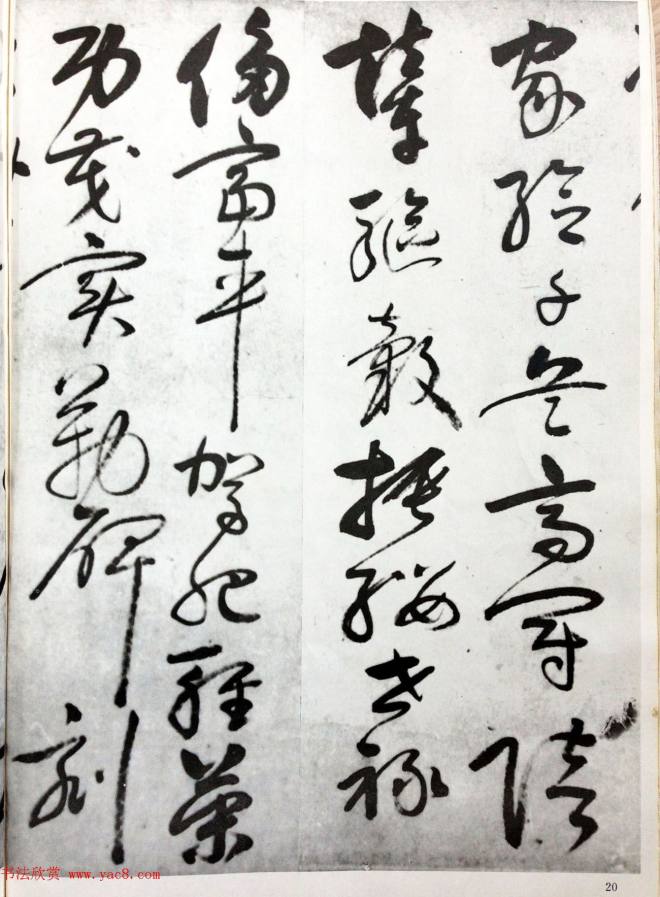 家給千兵高冠陪
輦驅轂振纓世祿
侈富車駕肥輕策
功茂實勒碑刻
书法欣赏 www.yac8.com
20